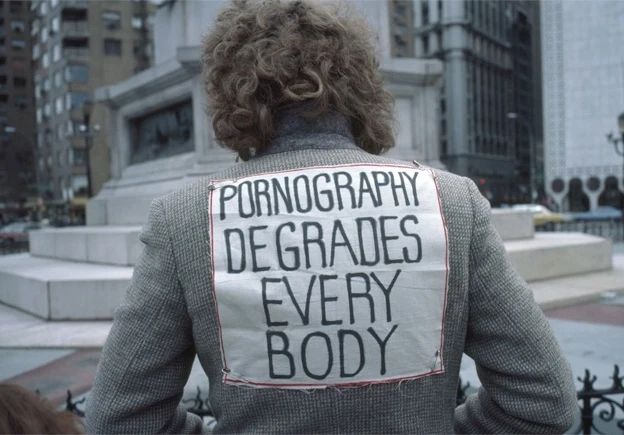 PORNOGRAPHY
DEGRADES
EVERY
BODY